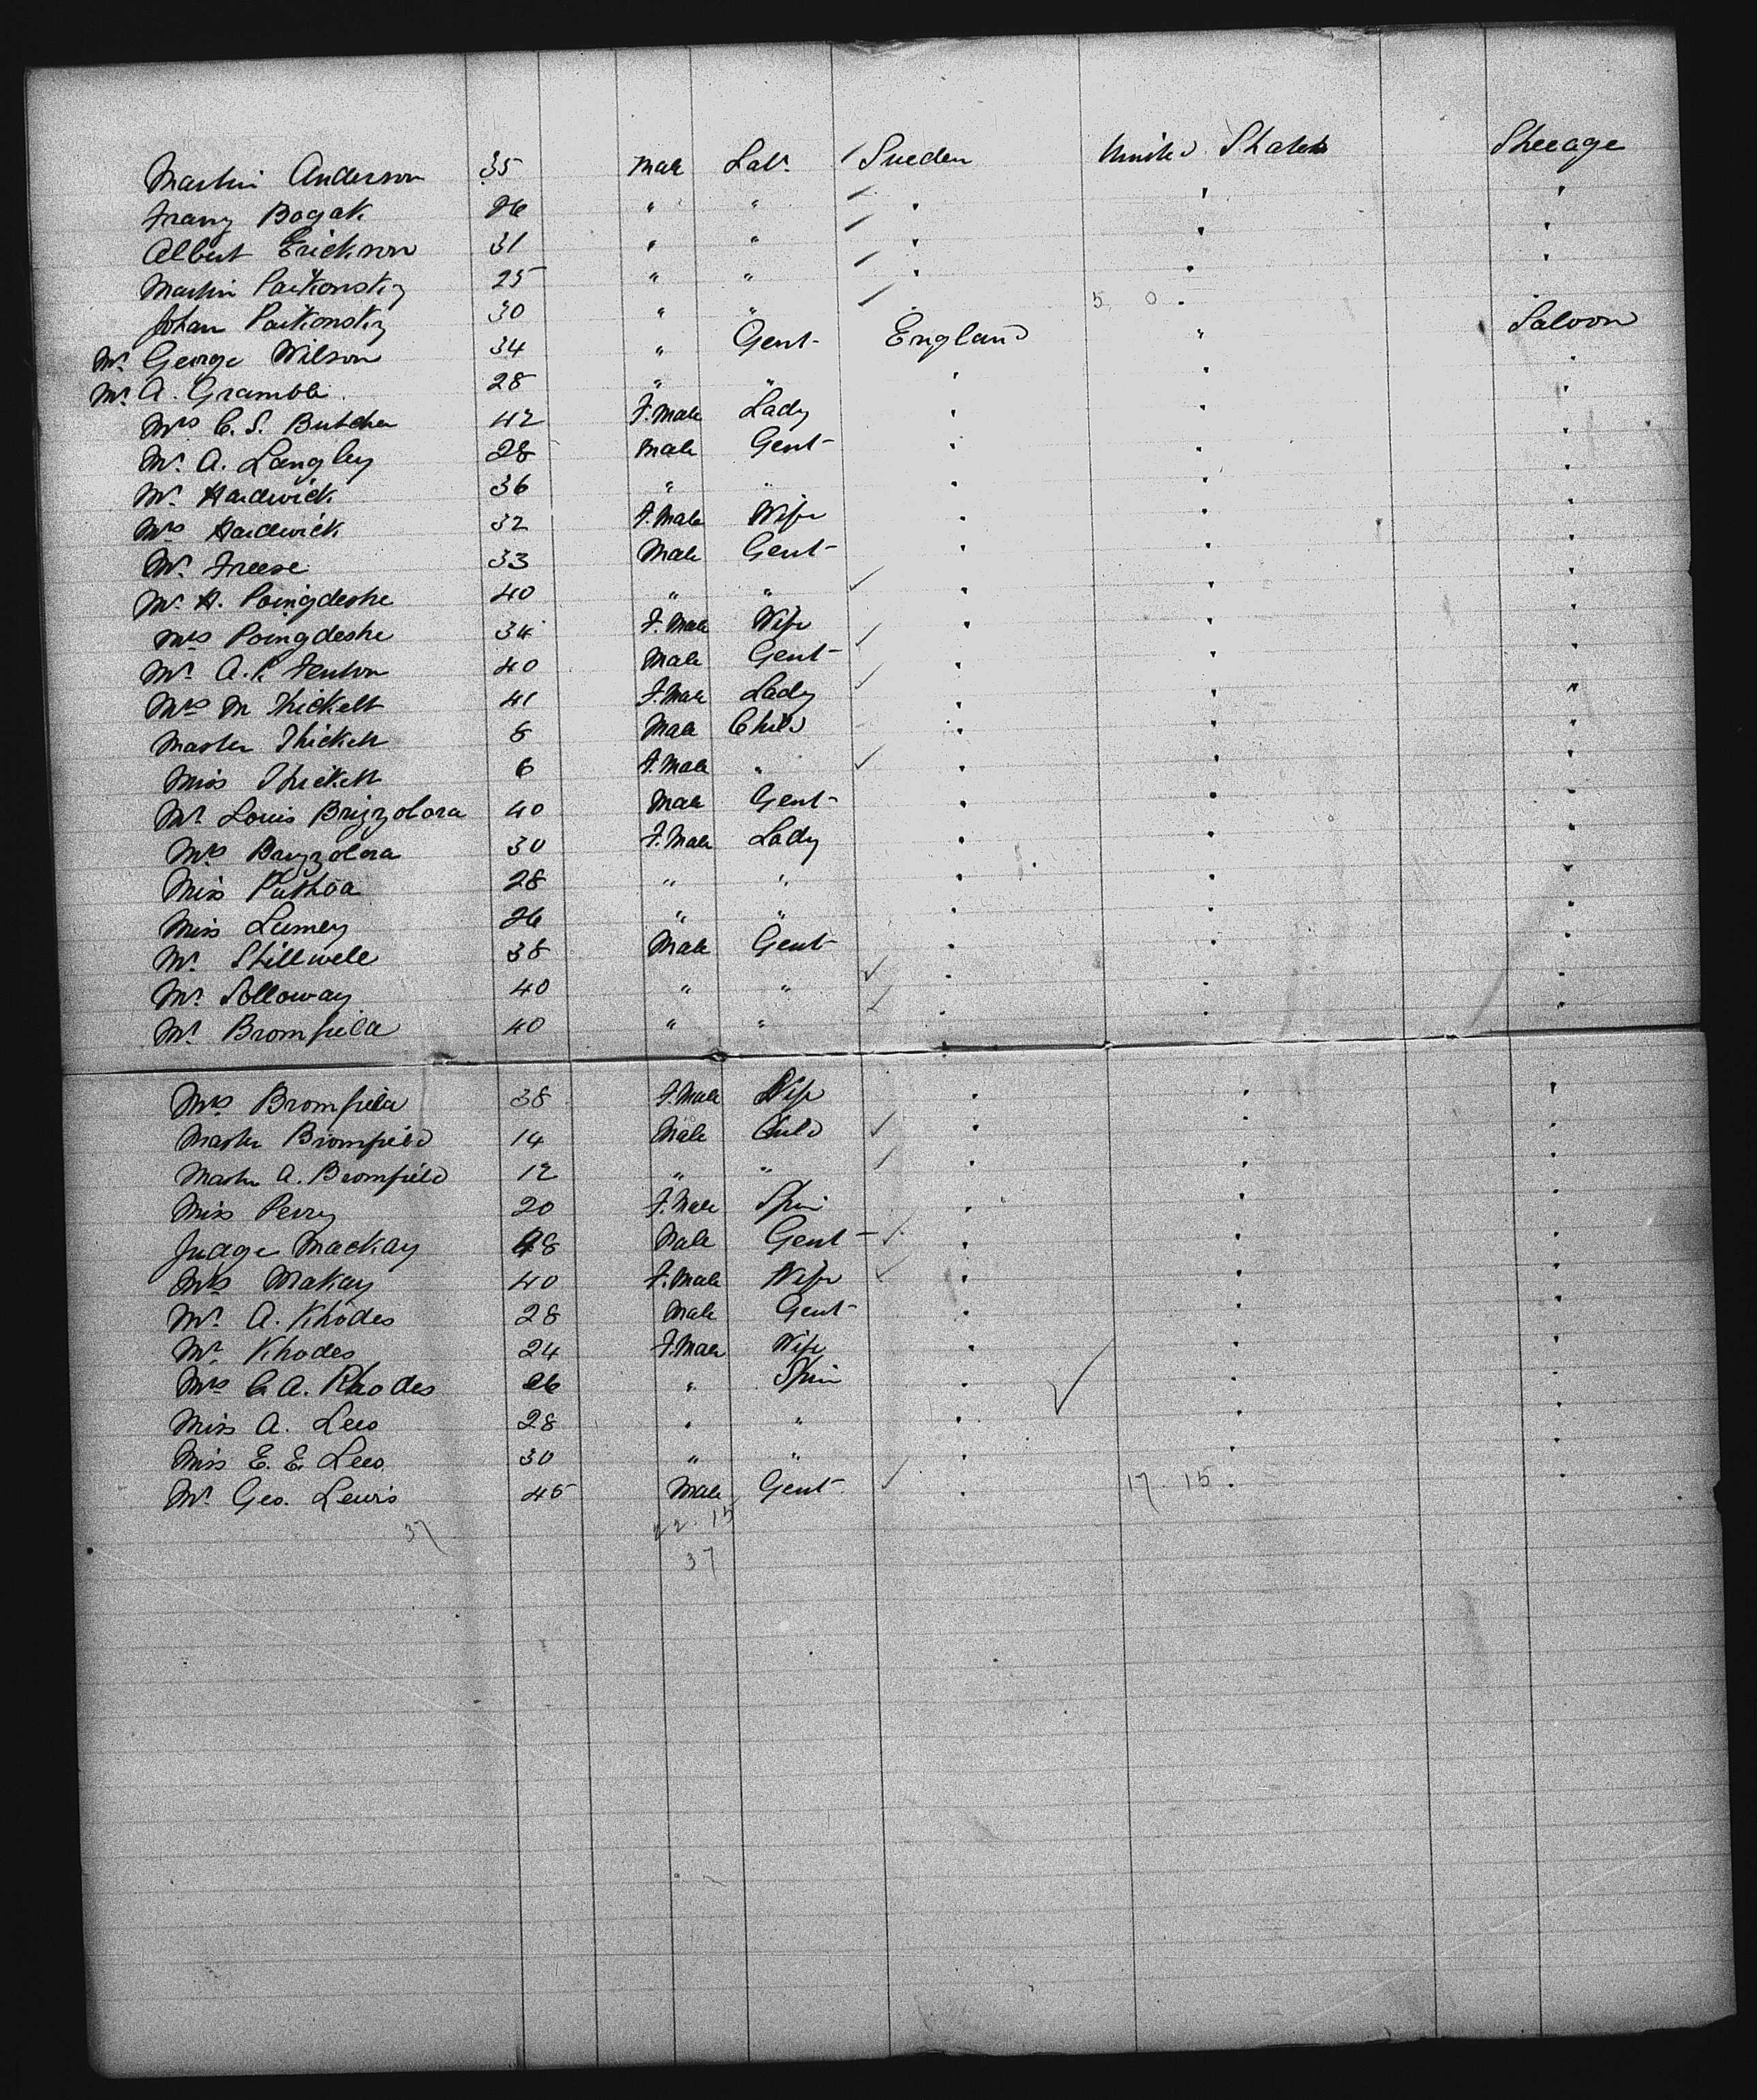 Martin Anderson 35 Male Lab. / Sweden United States Steerage
Franz Bogak 26 " " / " " "
Albert Erickson 31 " " / " " "
Martin Paikonsky 25 " " / " " "
Johan Paikonsky 30 " " / 5 0 "
Mr. George Wilson 34 " Gent England " Saloon
Mr. A. Gramble 28 " " " " "
Mrs C. S. Butcher 42 F. Male Lady " " "
Mr. A. Langley 28 Male Gent " " "
Mr. Hardwick 36 " " " " "
Mrs Hardwick 32 F. Male Wife " " "
Mr. Freese 33 Male Gent " " "
Mr. H. Poingdestre 40 " " ✓ " " "
Mrs Poingdestre 34 F. Male Wife ✓ " " "
Mr. A. Fenton 40 Male Gent ✓ " " "
Mrs M Thickett 41 F. Male Lady ✓ " " "
Master Thickett 8 Male Child " " "
Miss Thickett 6 F. Male " ✓ " " "
Mr. Louis Brizzolara 40 Male Gent " " "
Mrs Brizzolara 30 F. Male Lady " " "
Miss 28 " " " " "
Miss Lumey 26 " " " " "
Mr. Stillwell 38 Male Gent " " "
Mr. Solloway 40 " " ✓ " " "
Mr. Bromfield 40 " " ✓ " " "
Mrs Bromfield 38 F. Male Wife " " "
Master Bromfield 14 Male Child ✓ " " "
Master A. Bromfield 12 " " ✓ " " "
Miss Perry 20 F. Male Spin " " "
Judge Mackay 48 Male Gent ✓ " " "
Mrs Makay 40 F. Male Wife ✓ " " "
Mr. A. Rhodes 28 Male Gent " " "
Mr. Rhodes 24 F. Male Wife " " "
Mrs C. A. Rhodes 26 " Spin " ✓ " "
Miss A. Lees 28 " " " " "
Miss E. E. Lees 30 " " " " "
Mr. Geo. Lewis 45 Male Gent ✓ " 17. 15 " "
37 22. 15
37